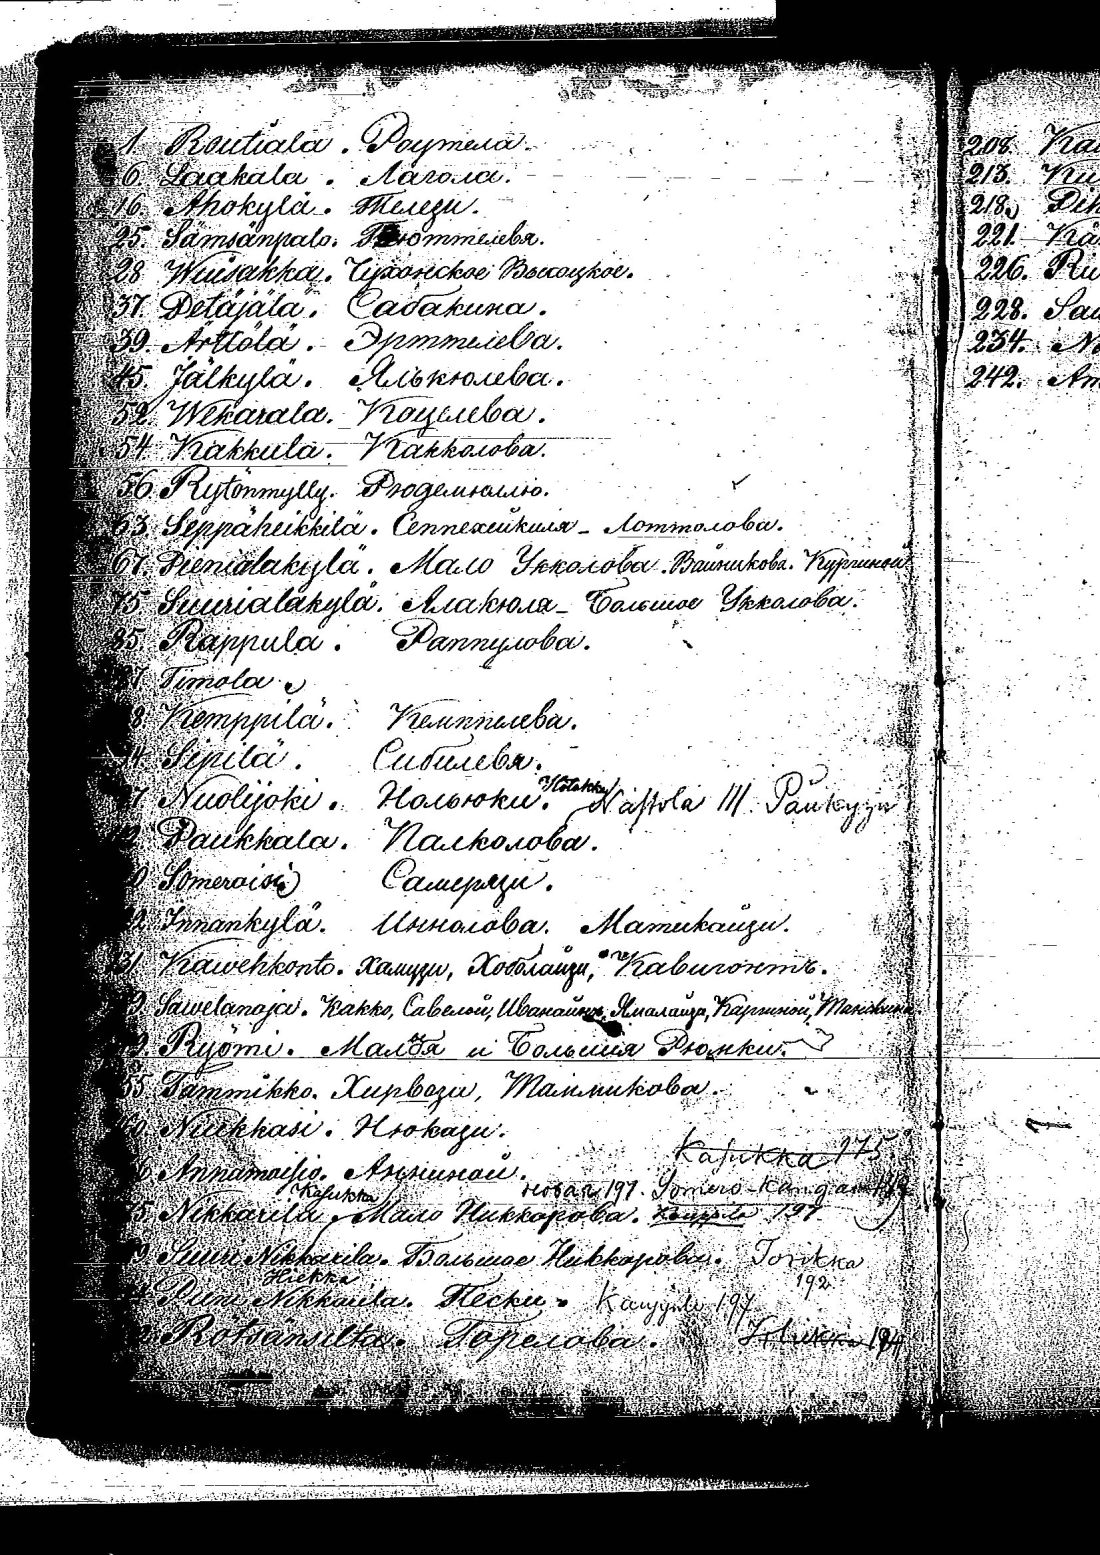 1. Routiala. Роутела.
6. Laakala. Лагола.
16. Ahokylä. Телези.
25. Sämsänpalo.
28 Wuusakka. Чухонское Высоцкое.
37. Petäjälä. Сабакина.
39. Ärttölä. Эрттелева.
45. Jälkylä. Ялькюлева.
52. Wekarala. Коцелева.
54. Kakkula. Какколова.
56. Rytönmylly. Рюдемюллю.
63. Seppäheikkilä. Сеппехейкиля - Лоттолова.
67. Pienialakylä. Мало Укколова. Вайникова. Кургиной
75. Suurialakylä. Алакюля - Большое Укколова.
85. Rappula. Раппулова.
87 Timola.
8. Kemppilä. Кемппелева.
4. Sipilä. Сибилевя.
7. Nuolijoki. Нольюки. Nästola III. Райкузи
2. Paukkala. Палколова.
0 Someroisi Самерязи.
2. Innankylä. Иннолова. Матикайзи.
131. Kawehkonto. Хамузи, Хоблайзи, Кавигонтъ.
9. Sawelanoja. Какко, Савелой, Ималайзи, Каргиной,
9. Ryömi. Малья и Большия Рюмки.
55. Tammikko. Хирвози, Таммикова.
60. Niukkasi. Нюкази.
Kasukka 175.
6. Annamoisio. Анниной.
Kasukka новая 197. Somero-Kangas
75. Nikkarila, Мало Никкорова. 197
9. Suuri Nikkarila. Большое Никкорова. Torikka
Hiekka 192
Pieni Nikkarila. Пески. 197
2. Rötsänsilta. Горелова. 194
208. Ka
213. Ku
218.
221. Kä
226. Ru
228. Sau
234. N
242. Am